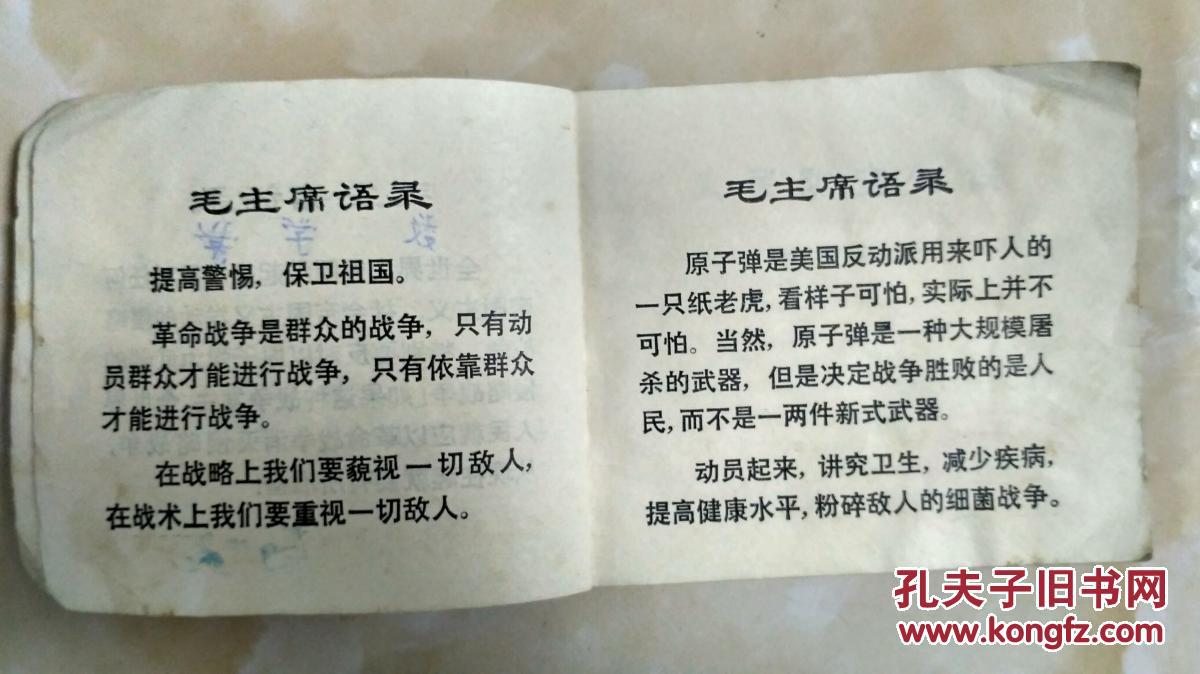 毛主席语录
提高警惕，保卫祖国。
革命战争是群众的战争，只有动
员群众才能进行战争，只有依靠群众
才能进行战争。
在战略上我们要藐视一切敌人，
在战术上我们要重视一切敌人。
毛主席语录
原子弹是美国反动派用来吓人的
一只纸老虎，看样子可怕，实际上并不
可怕。当然，原子弹是一种大规模屠
杀的武器，但是决定战争胜败的是人
民，而不是一两件新式武器。
动员起来，讲究卫生，减少疾病，
提高健康水平，粉碎敌人的细菌战争。
孔夫子旧书网
www.kongfz.com